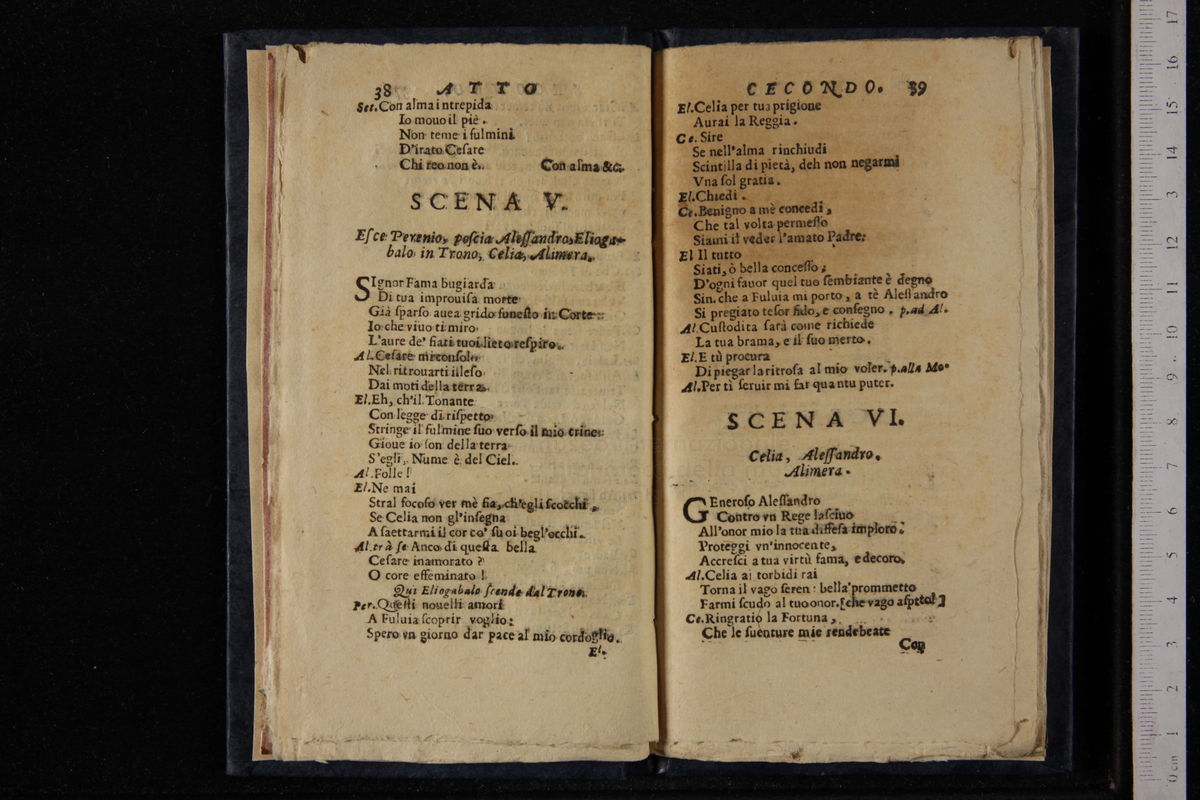 38 ATTO
Ser. Con alma intrepida
Io mouo il piè.
Non teme i fulmini
D'irato Cesare
Chi reo non è. Con alma &c.
SCENA V.
Esce Perenio, poscia Alessandro, Elioga-
balo in Trono, Celia, Alimera.
SIgnor Fama bugiarda
Di tua improuisa morte
Già sparso auea grido funesto in Corte:
Io che viuo ti miro
L'aure de' fiati tuoi lieto respiro.
Al. Cesare mi consolo
Nel ritrouarti illeso
Dai moti della terra.
El. Eh, ch'il Tonante
Con legge di rispetto
Stringe il fulmine suo verso il mio crine:
Gioue io son della terra
S'egli, Nume è del Ciel.
Al. Folle!
El. Ne mai
Stral focoso ver mè fia, ch'egli scocchi,
Se Celia non gl'insegna
A saettarmi il cor co' suoi begl'occhi.
Al. trà se Anco di questa bella
Cesare inamorato?
O core effeminato!
Qui Eliogabalo scende dal Trono.
Per. Questi nouelli amori
A Fuluia scoprir voglio:
Spero vn giorno dar pace al mio cordoglio.
El.
CECONDO. 39
El. Celia per tua prigione
Aurai la Reggia.
Ce. Sire
Se nell'alma rinchiudi
Scintilla di pietà, deh non negarmi
Vna sol gratia.
El. Chiedi.
Ce. Benigno a mè concedi,
Che tal volta permesso
Siami il veder l'amato Padre.
El Il tutto
Siati, ò bella concesso;
D'ogni fauor quel tuo sembiante è degno
Sin. che a Fuluia mi porto, a tè Alessandro
Si pregiato tesor fido, e consegno. p. ad Al.
Al. Custodita sarà come richiede
La tua brama, e il suo merto.
El. E tù procura
Di piegar la ritrosa al mio voler. p. alla Mo.
Al. Per tì seruir mi far quantu puter.
SCENA VI.
Celia, Alessandro.
Alimera.
GEneroso Alessandro
Contro vn Rege lasciuo
All'onor mio la tua diffesa imploro:
Proteggi vn'innocente,
Accresci a tua virtù fama, e decoro.
Al. Celia ai torbidi rai
Torna il vago seren: bella prommetto
Farmi scudo al tuo onor. [che vago asptto!]
Ce. Ringratio la Fortuna,
Che le suenture mie rendebeate
Con
0 cm 1 2 3 4 5 6 7 8 9 10 11 12 13 14 15 16 17